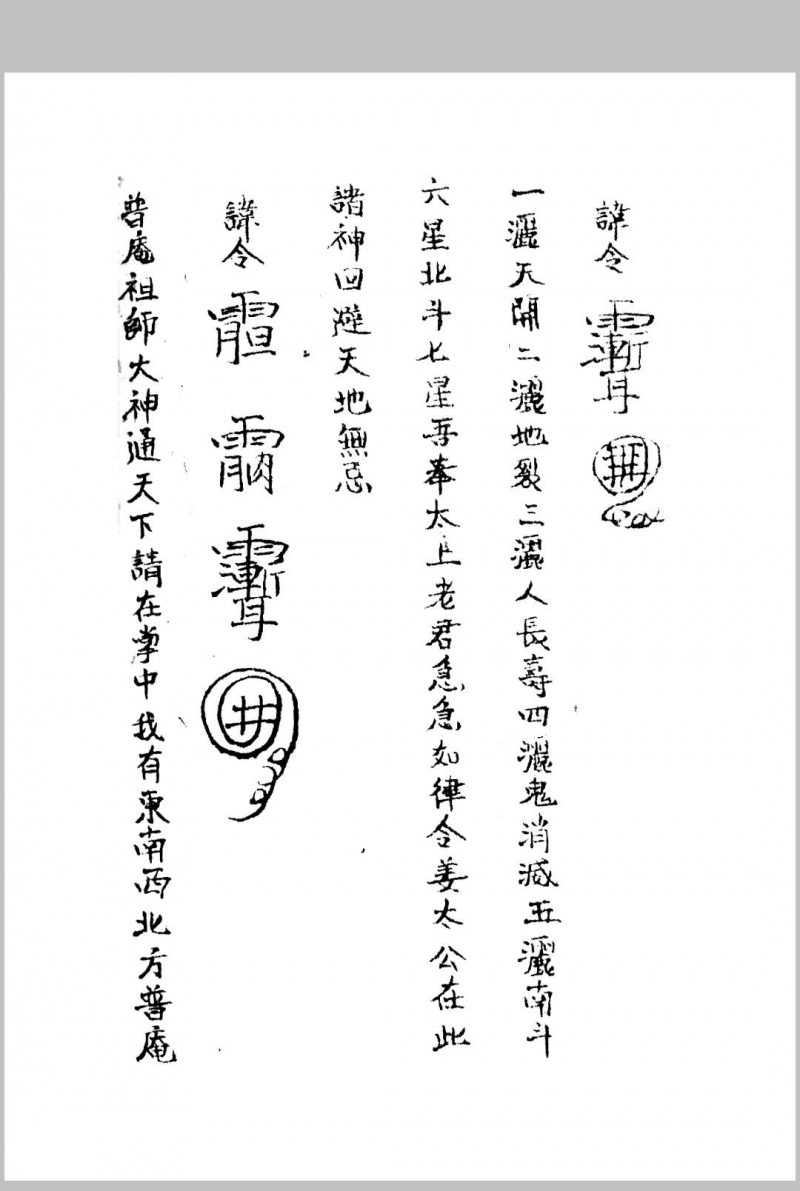 諱令
一灑天開二灑地裂三灑人長壽四灑鬼消滅五灑南斗
六星北斗七星吾奉太上老君急急如律令姜太公在此
諸神回避天地無忌
諱令
普庵祖師大神通天下請在掌中我有東南西北方普庵